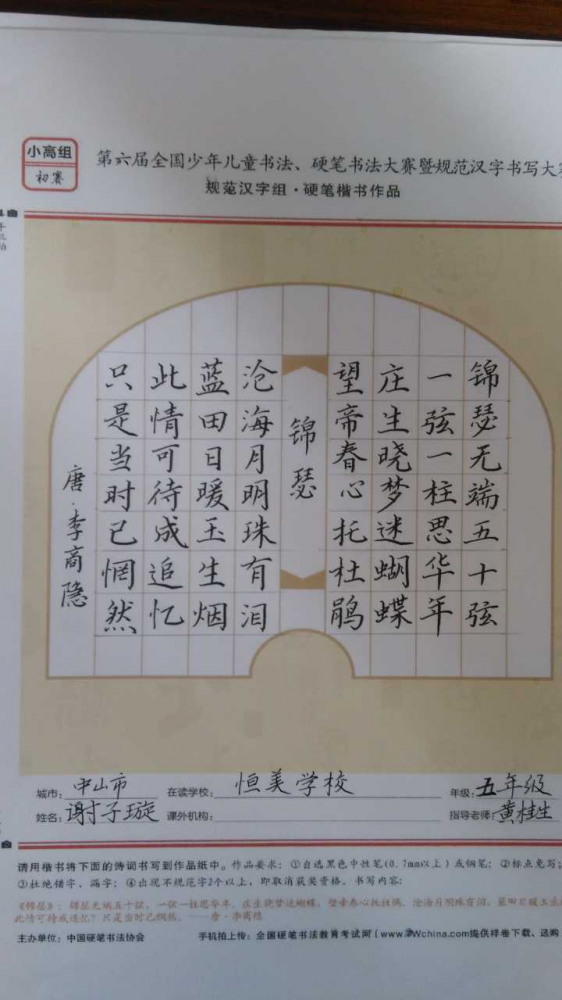 小高组
初赛
第六届全国少年儿童书法、硬笔书法大赛暨规范汉字书写大
规范汉字组·硬笔楷书作品
锦瑟无端五十弦
一弦一柱思华年
庄生晓梦迷蝴蝶
望帝春心托杜鹃
锦瑟
沧海月明珠有泪
蓝田日暖玉生烟
此情可待成追忆
只是当时已惘然
唐·李商隐
城市：中山市 在读学校：恒美学校 年级：五年级
姓名：谢子璇 课外机构： 指导老师：黄桂生
请用楷书将下面的诗词书写到作品纸中。作品要求：①自选黑色中性笔(0.7mm以上)或钢笔；②标点免写；
③杜绝错字、漏字；④出现不规范字2个以上，即取消获奖资格。书写内容：
《锦瑟》：锦瑟无端五十弦，一弦一柱思华年。庄生晓梦迷蝴蝶，望帝春心托杜鹃。沧海月明珠有泪，蓝田日暖玉生
此情可待成追忆？只是当时已惘然。——唐·李商隐
主办单位：中国硬笔书法协会 手机拍上传：全国硬笔书法教育考试网（www.	Wchina.com提供样卷下载、选购